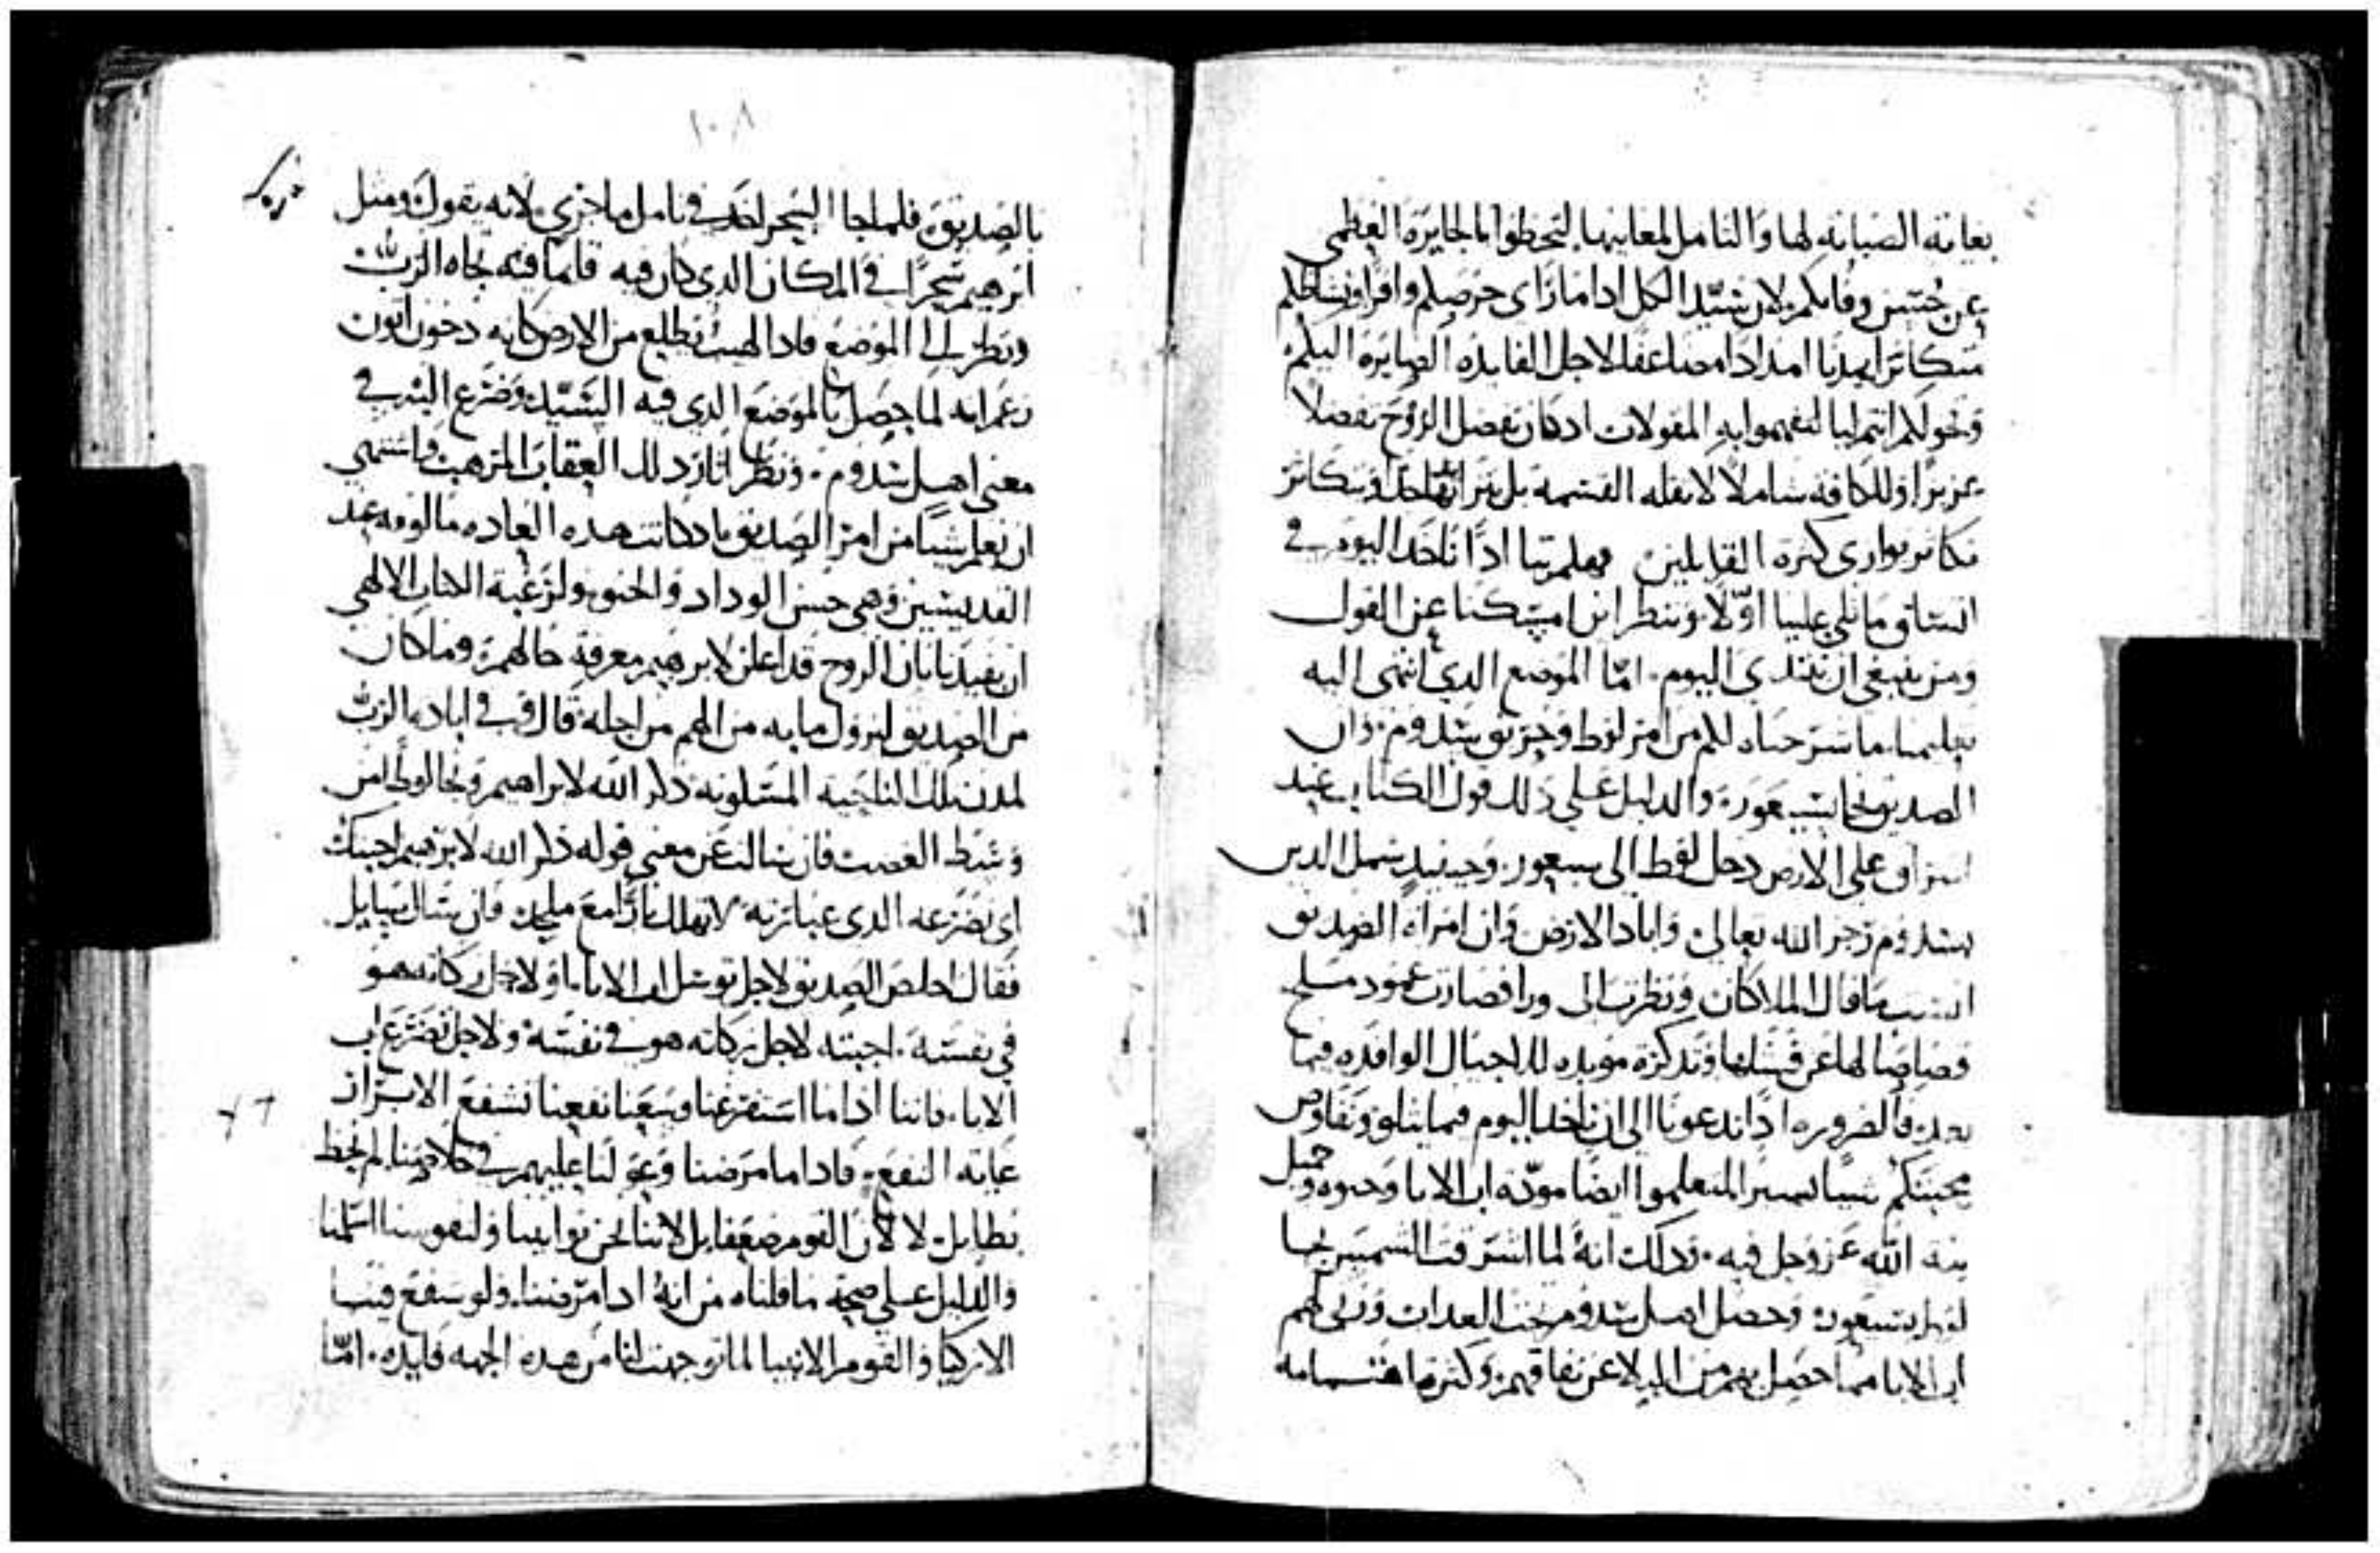 بغاية الصيانة لها والتامل لمعانيها لتحظوا بالجايزة العظمى
عن حسن وفايكم لان سيد الكل اذا ما راى حرصكم وافرا ونشاطكم
متكاثرا يمدنا امدادا مضاعفا لاجل الفايده الصايرة اليكم
ويخولكم انتم ايضا لتفهموا به المقولات اد كان تفضل الروح تفضلا
عزيزا وللكافه شاملا لا يقله القسمة بل يتزايد وتتكاثر
تكاثر يوازي كثرة القابلين فهلم بنا ادا ناخد اليوم في
اتساق ما تلي علينا اولا وننظر اين امسكنا عن القول
ومن ينبغي ان نبتدي اليوم. اما الموضع الدي انتهى اليه
تعليمنا ما شرحناه لكم من امر لوط وحريق سدوم. وان
الصديق نجا بسيعور. والدليل على دلك قول الكتاب عند
اشراق على الارض دخل لوط الى سيعور. وحينيد شمل الدين
بسدوم زجر الله تعالى واباد الارض وان امراة الصديق
انسيت ما قال الملاكان ونظرت الى ورا فصارت عمود ملح
قصاصا لها عن فشلها وتدكرة موبده للاجيال الوافده فيما
بعد. فالضروره ادا تدعونا الى ان ناخد اليوم فيما يتلو ونفاوض
محبتكم شيا يسير التعلموا ايضا مودة اب الابا وحنوه وجميل
نية الله عز وجل فيه. ودلك انه لما اشرقت الشمس نجا
لوط بسيعور. وحصل اهل سدوم تحت العداب ورثى لهم
اب الابا مما حصل بهم من البلا عن نفاقهم. وكثر ما اهتمامه
١٠٨
بالصديق. فلما جا السحر اخد في تامل ما جرى. لانه يقول ومثل
ابرهيم سحرا في المكان الدي كان فيه قايما فيه تجاه الرب
ونظر الى الموضع فادا لهيب يطلع من الارض كانه دخون اتون
زعم انه لما حصل بالموضع الدي فيه السيد وضرع اليه في
معنى اهل سدوم. ونظر اثار دلك العقاب المرهب واشتهى
ان يعلم شيا من امر الصديق اد كانت هده العاده مالوفه عند
القديسين وهي حسن الوداد والحنو. ولرغبة الكتاب الالهي
ان يفيدنا بان الروح قد اعلن لابرهيم معرفة حالهم. وما كان
من الصديق لنزول ما به من الهم من اجله. قال وفي اباد الرب
لمدن تلك الناحية المسكونه دكر الله لابراهيم ونجا لوطا من
وسط الغضب فان سالت عن معنى قوله دكر الله لابرهيم اجبتك
اي تضرعه الدي عبارته لا تهلك بارا مع ملحد. فان سال سايل
فقال اخلص الصديق لاجل توسل اب الابا. او لاجل بركاته هو
في نفسه. اجبته لاجل بركاته هو في نفسه ولاجل تضرع اب
الابا. فاننا ادا ما استفرغنا وسعنا نفعنا تشفع الابرار
غاية النفع. فادا ما مرضنا وعولنا عليهم في خلاصنا لم نحظ
بطايل. لا لان القوم ضعفا بل لاننا نحن توانينا ولنفوسنا اسلمنا
والدليل على صحة ما قلناه من انه ادا مرضنا. ولو تشفع فينا
الازكيا والقوم الانبيا لما توجهت لنا من هده الجهه فايده. اما